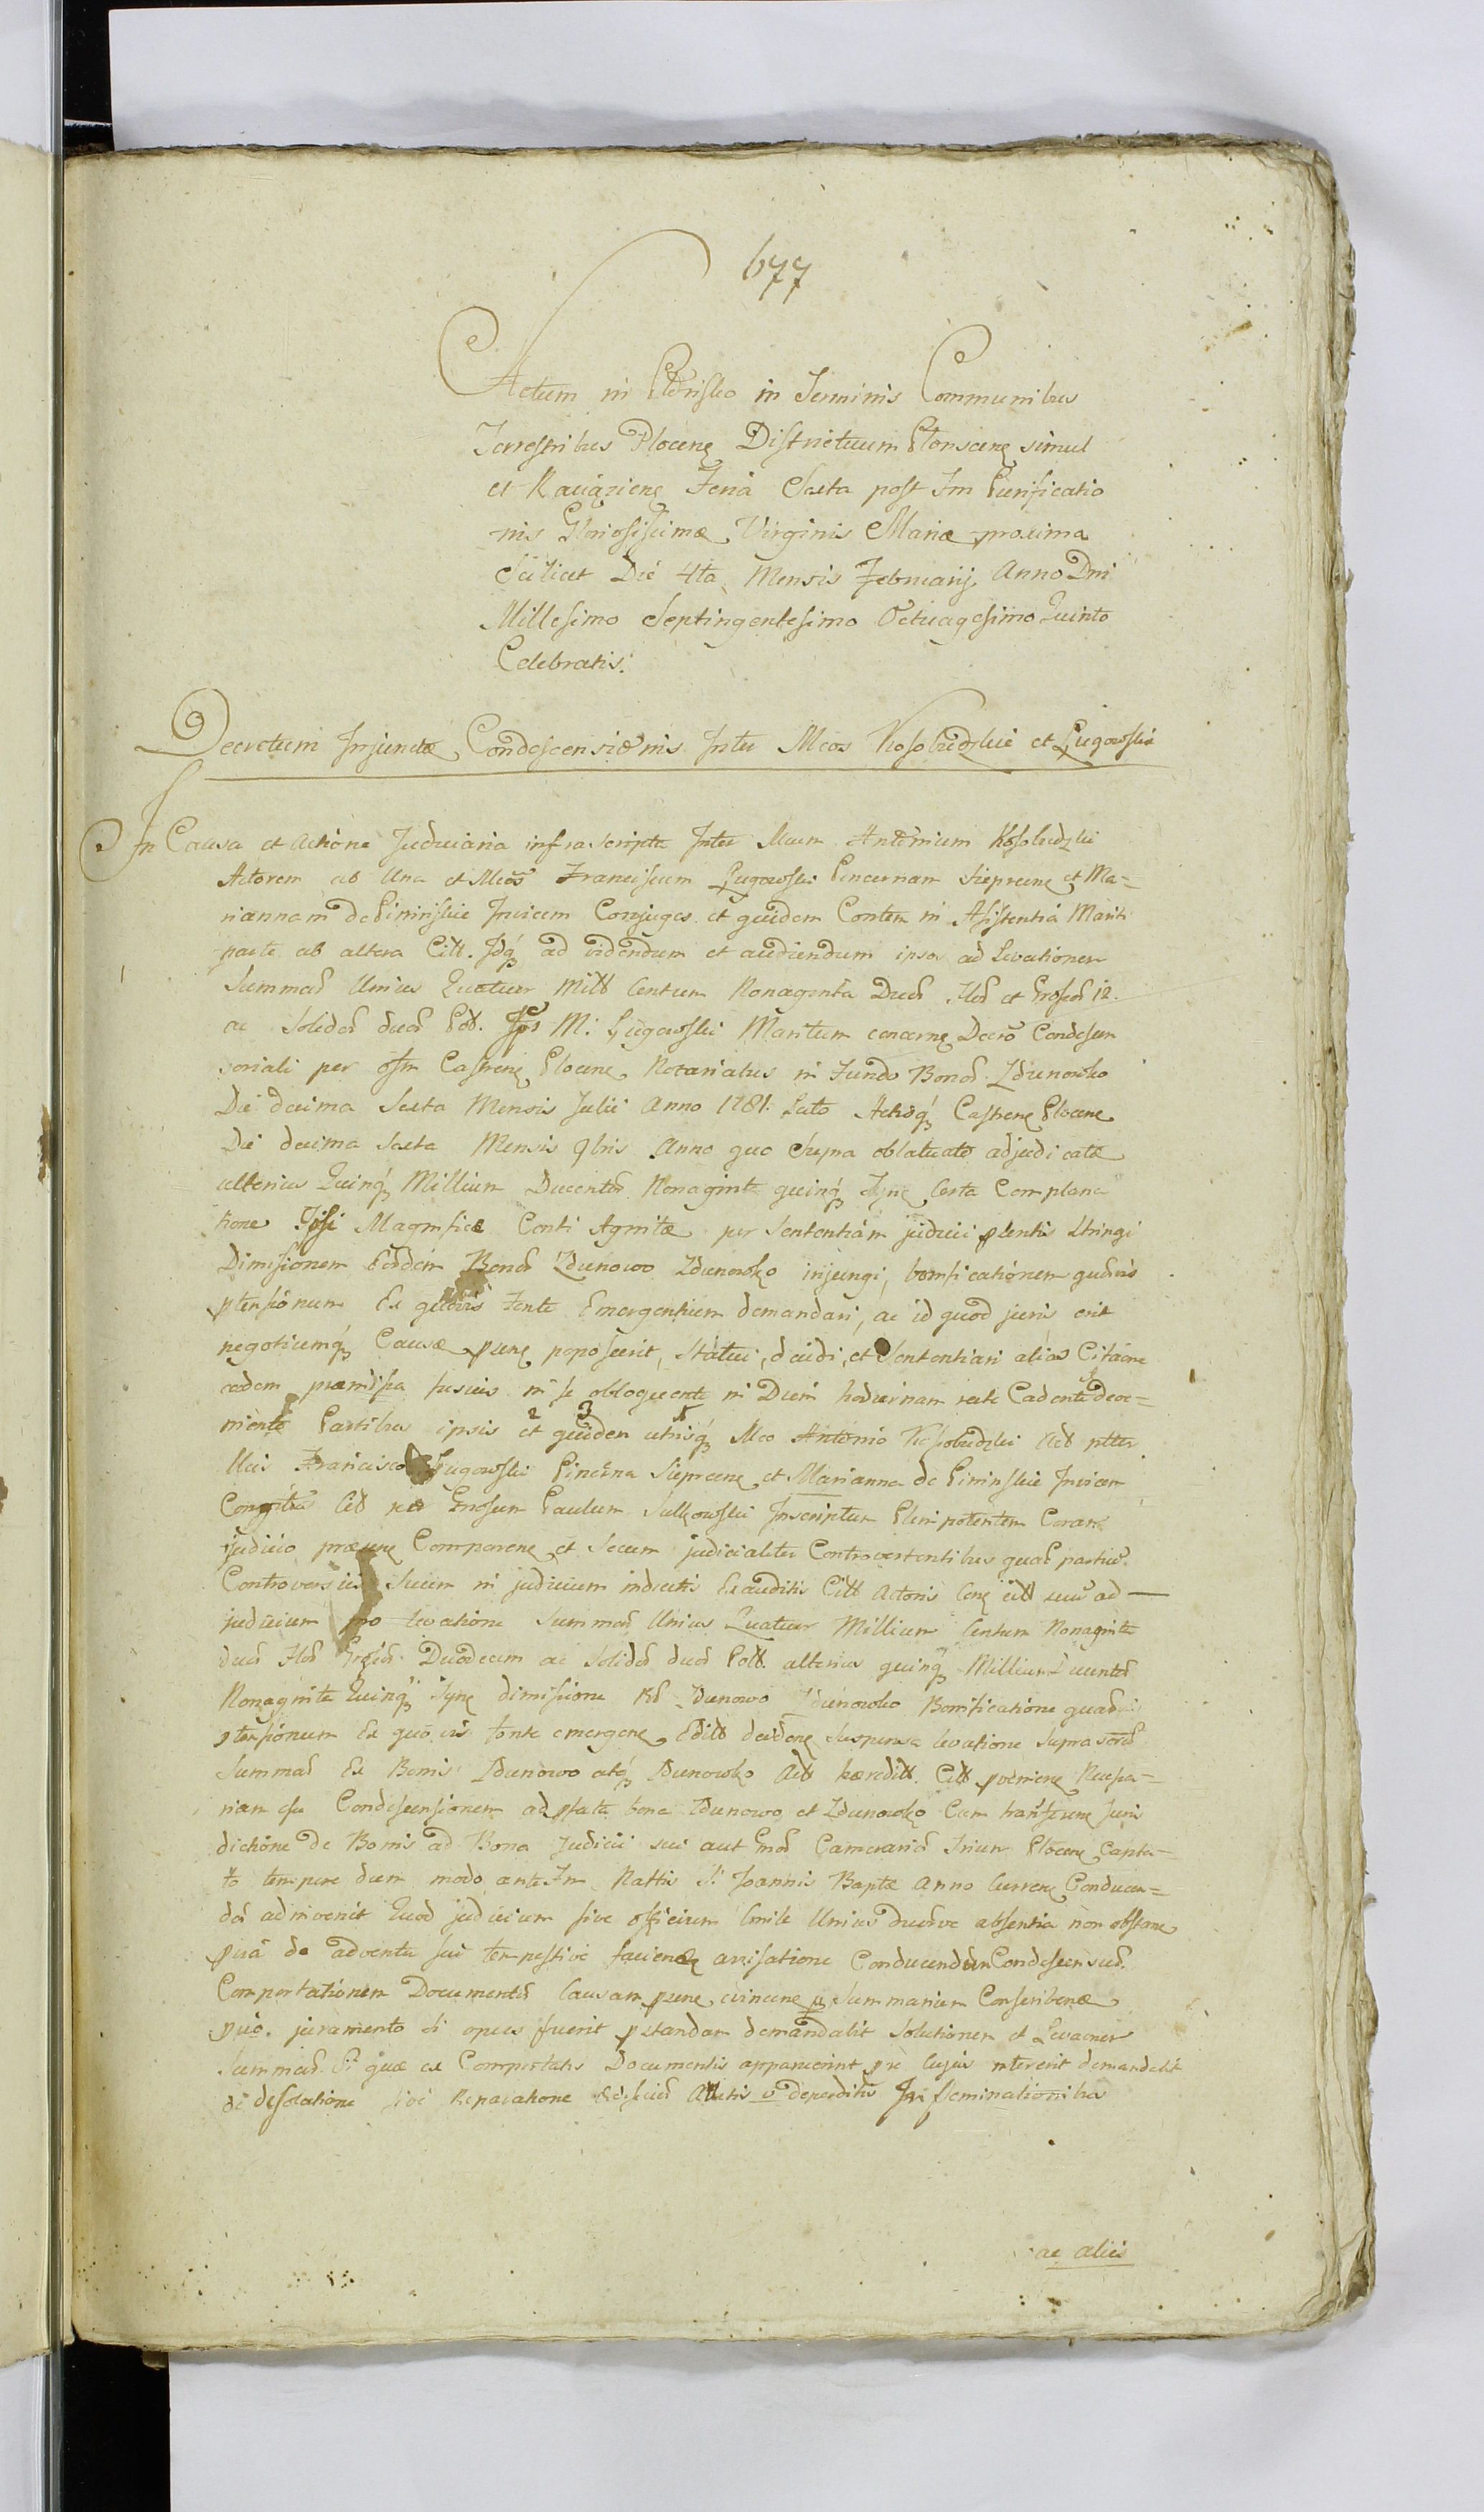 677
Actum in Płońsko in Terminis Communibus
Terrestribus Plocen Districtuum Plonscen simul
et Raciążien Feria Sexta post Fm Purificatio
nis Gloriosissimæ Virginis Mariæ proxima
Scilicet Die 4ta Mensis Februarij Anno Dni
Millesimo Septingentesimo Octuagesimo Quinto
Celebratis.
Decretum Injunctæ Condescensionis Inter Mcos Kosobudzki et Ługowskie
In Causa et Actione Judiciaria infrascripta Inter Mcum Antonium Kosobudzki
Actorem ab Una et Mcos Franciscum Ługowski Pincernam Sieprcen et Ma=
riannam de Pininskie Invicem Conjuges et quidem Contem in Assistentia Mariti
parte ab altera Citt. Idq ad videndum et audiendum ipsos ad Levationem
Summar Unius Quatuor Mill Centum Nonaginta Duor Flor et Grossor 12.
ac Solidor duor Pol. Ips M. Ługowski Maritum concern Decro Condescen
soriali per offm Castren Plocen Notarialus in Fundo Bonor Zdunowko
Die decima Sexta Mensis Julii Anno 1781. Lato Actisq Castren Plocen
Die decima Sexta Mensis 9bris Anno quo Supra oblatuato adjudicatæ
alterius Quinq Millium Ducentor Nonaginta quinq Fpn Certa Complana
tione Ipsi Magnificæ Conti Agnitæ per Sententiam judicii pſentis Stringi
Dimissionem Eordem Bonor Zdunowo Zdunowko injungi, bonificationem quarvis
ptensionum Ex quovis Fonte Emergentium demandari, ac id quod juris erit
negotiumq Causæ pnns poposcerit, Statui, decidi, et Sententiari alias Citaone
eadem præmissa fusius in se obloquente in Diem hodiernam recte Cadente deve=
niente Partibus ipsis et quidem utrisq Mco Antonio Kosobudzki Act
2 3 1
Mcis Francisco Ługowski Pincerna Sieprcen et Marianna de Pininskie Invicem
Congibus Citt per Gnosum Paulum Sulkowski Inscriptum Plenipotentem Coram
judicio præsen Comparen et Secum judicialiter Controvertentibus quar partium
Controversiis Suum in judicium inductis Exauditis Citt Actoris Cen citt suum ad —
judicium pro levatione Summar Unius Quatuor Millium Centum Nonaginta
duor Flor Grossor Duodecim ac Solidor duor Poll. alterius quinq Millium Ducentor
Nonaginta Quinq Fpn dimissione Bor Zdunowo Zdunowko Bonificatione quarvis
ptensionum Ex quovis fonte emergen Edit deciden Suspensa levatione suprascr
Summar Ex Bonis Zdunowo atq Zdunowko Act hæredit. Citt provenien Necessa=
riam esse Condescensionem ad pfata bona Zdunowo et Zdunowko Cum transfusione Juris
dictione de Bonis ad Bona Judicii sui aut Gnor Camerarior Trium Plocen Capta=
to tempore dum modo ante Fm Nattis S. Joannis Baptæ Anno Curren Conducen=
dar adinvenit Quod judicium sive officium Comile Unius duorve absentia non obstan
pvia de adventu sui tempestive faciendæ avisatione Conducendum Condescensur
Comportationem Documentor Causam pnen evincen Summarium Conscribendæ
pvio juramento si opus fuerit pstandam demandabit Solutionem et Levaonem
Summar Si quæ ex Comportatis Documentis apparuerint prō Cujus intererit demandabit
de desolatione sive Reparatione Ædificior Auctis v deperditis Inseminationibus
ac aliis